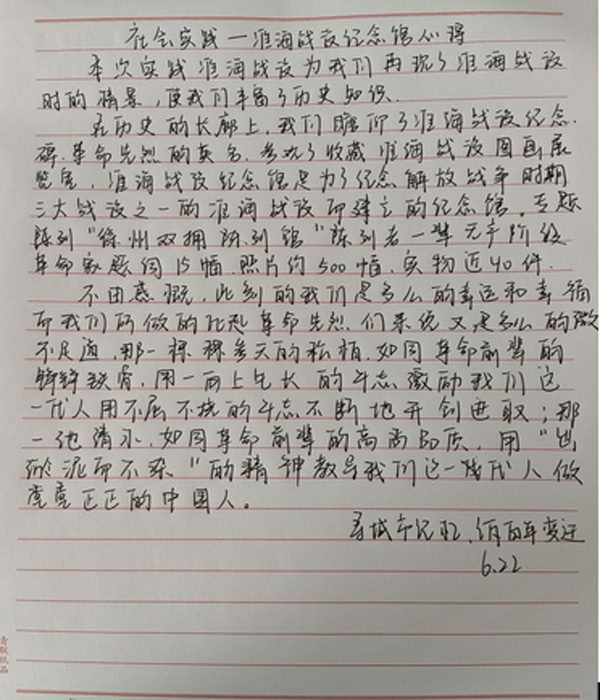 社会实践—淮海战役纪念馆心得
本次实践淮海战役为我们再现了淮海战役
时的情景,使我们丰富了历史知识.
在历史的长廊上,我们瞻仰了淮海战役纪念
碑.革命先烈的英名,参观了收藏淮海战役图画展
览室,淮海战役纪念馆是为了纪念解放战争时期
三大战役之一的淮海战役而建立的纪念馆,专题
陈列“徐州双拥陈列馆”陈列老一辈无产阶级
革命家题词15幅.照片约500幅,实物近40件.
不由感慨,此刻的我们是多么的幸运和幸福
而我们所做的比起革命先烈们来说又是多么的微
不足道,那一棵棵参天的松柏,如同革命前辈的
铮铮铁骨,用一向上生长的斗志激励我们这
一代人用不屈不挠的斗志不断地开创进取;那
一池清水,如同革命前辈的高尚品质,用“出
淤泥而不染”的精神教导我们这一代人做
堂堂正正的中国人。
寻城市记忆,百年变迁
6.22
青联纸品